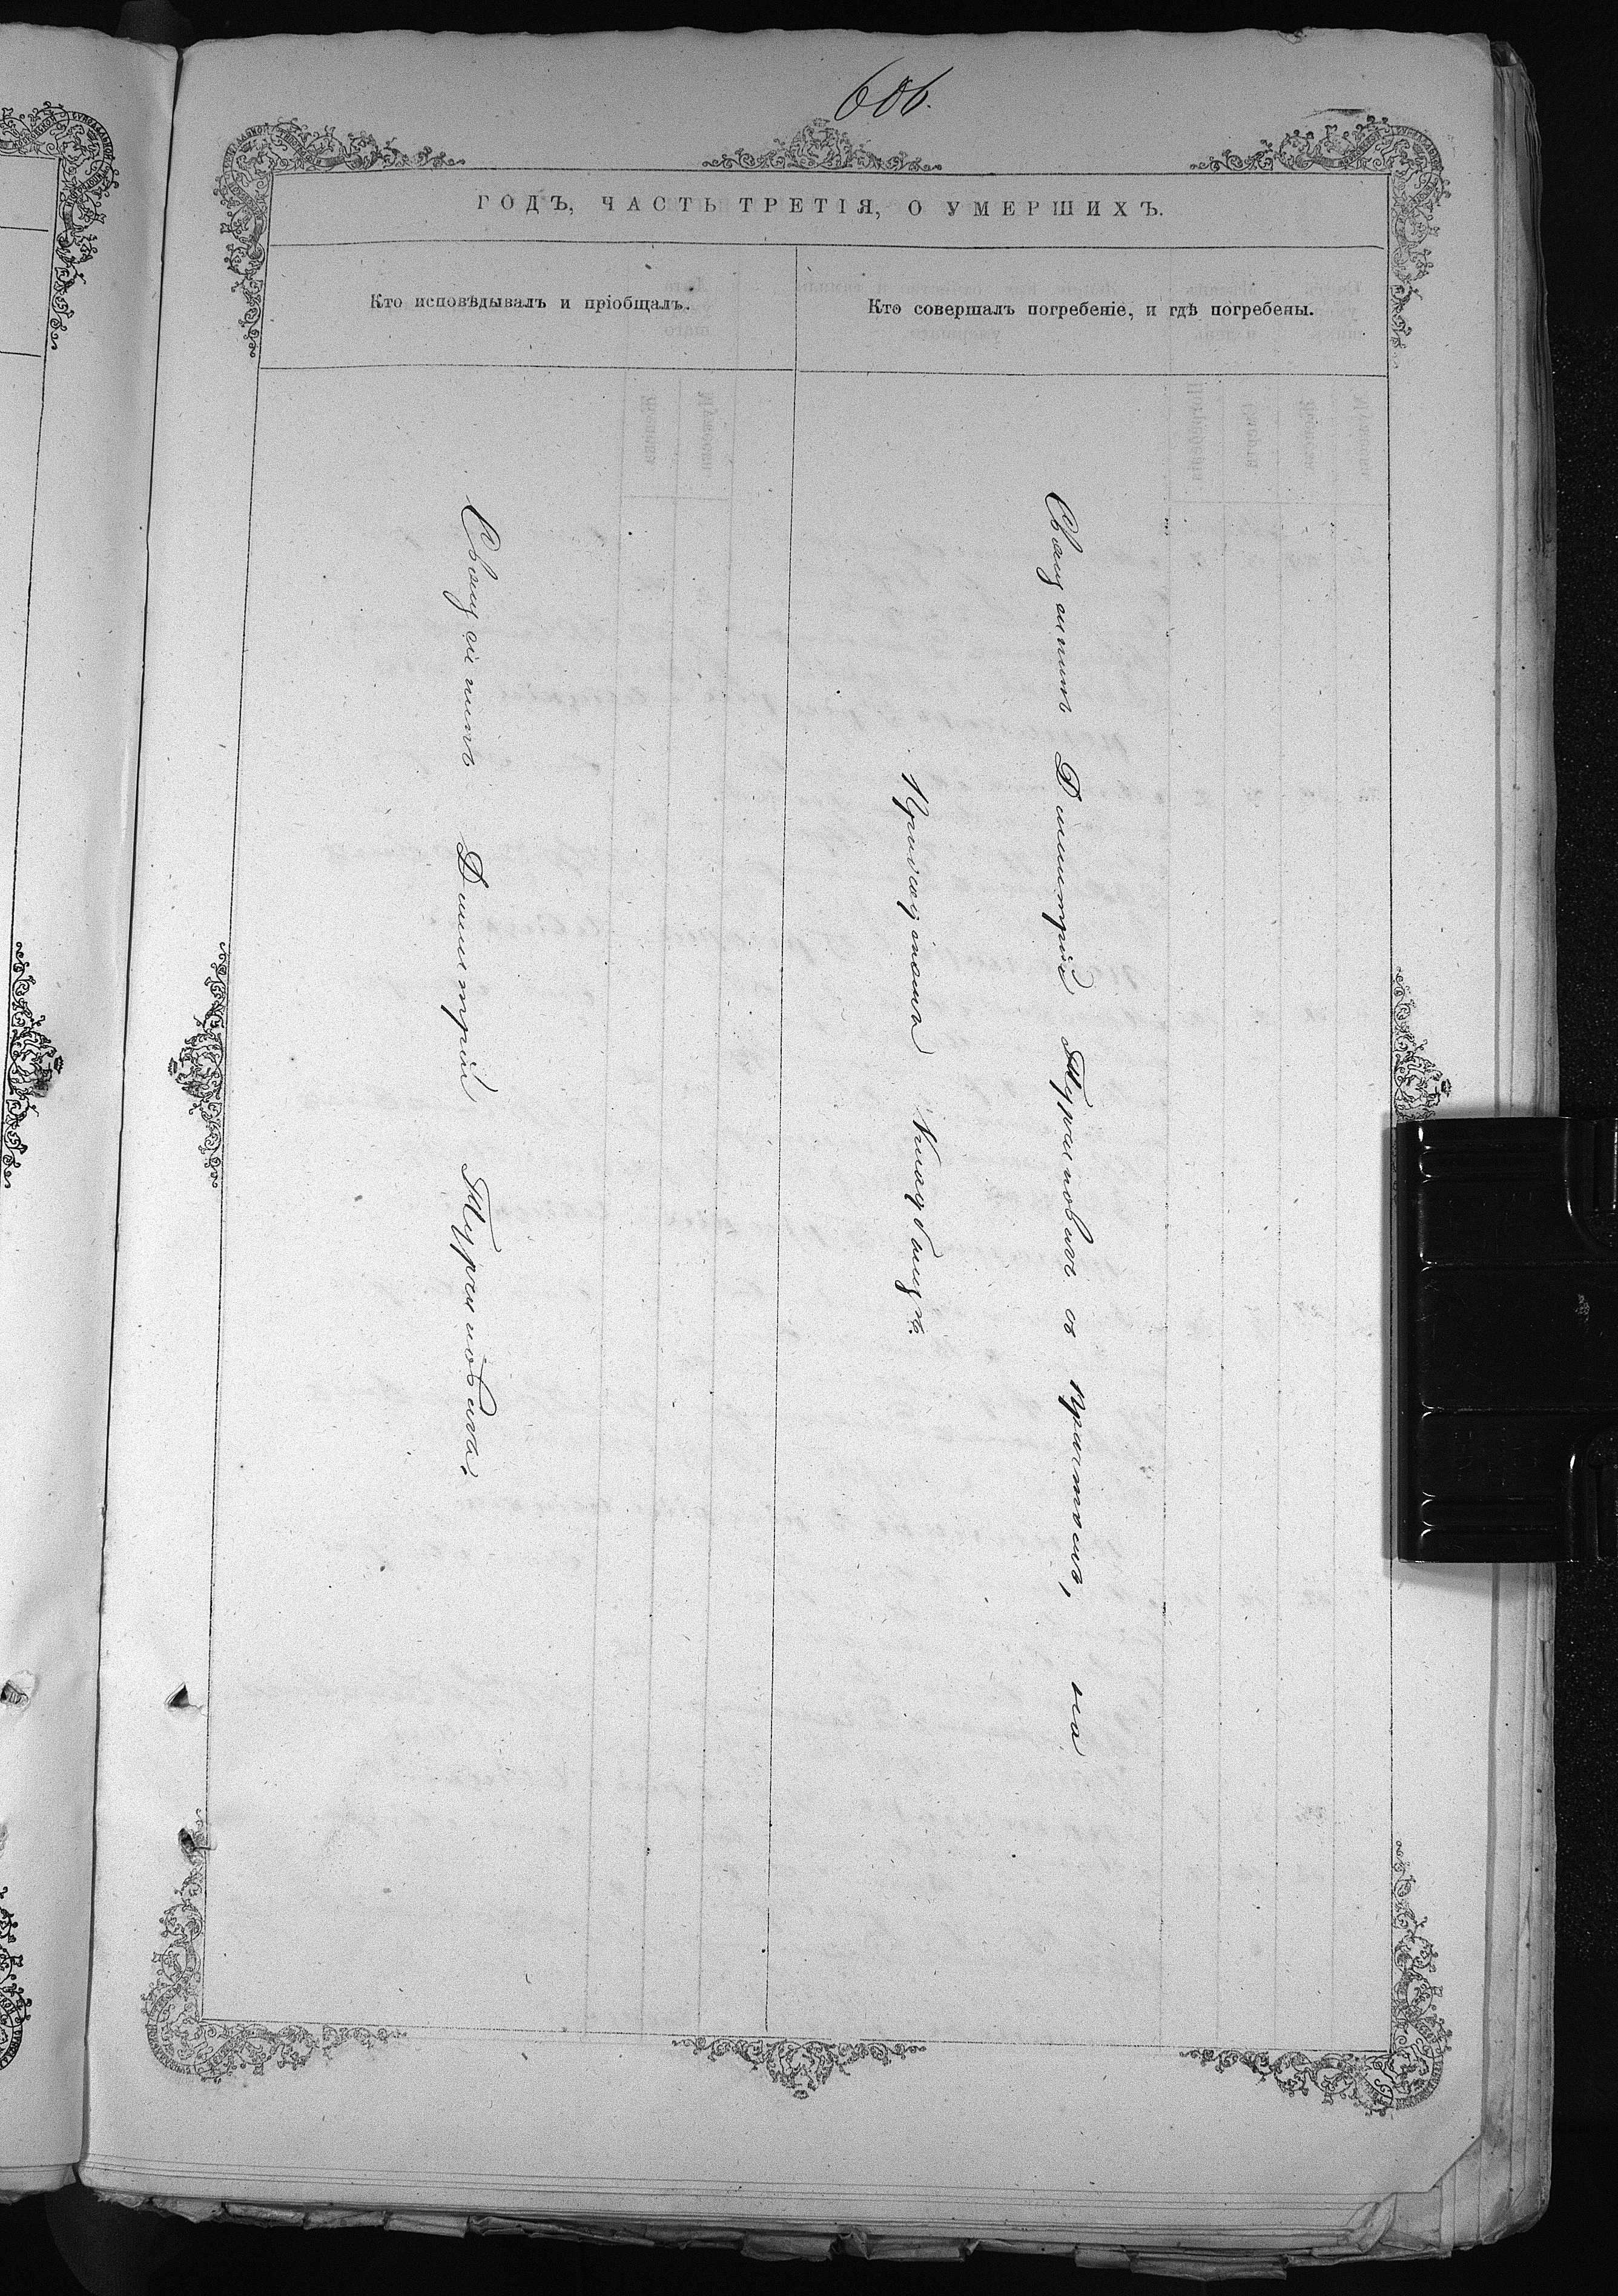 606.
ГОДЪ, ЧАСТЬ ТРЕТІЯ, О УМЕРШИХЪ.
Кто исповѣдывалъ и пріобщалъ.
Кто совершалъ погребеніе, и гдѣ погребены.
Священникъ Димитрій
Священникъ Димитрій с причтомъ, на
Приходскомъ кладбищѣ.